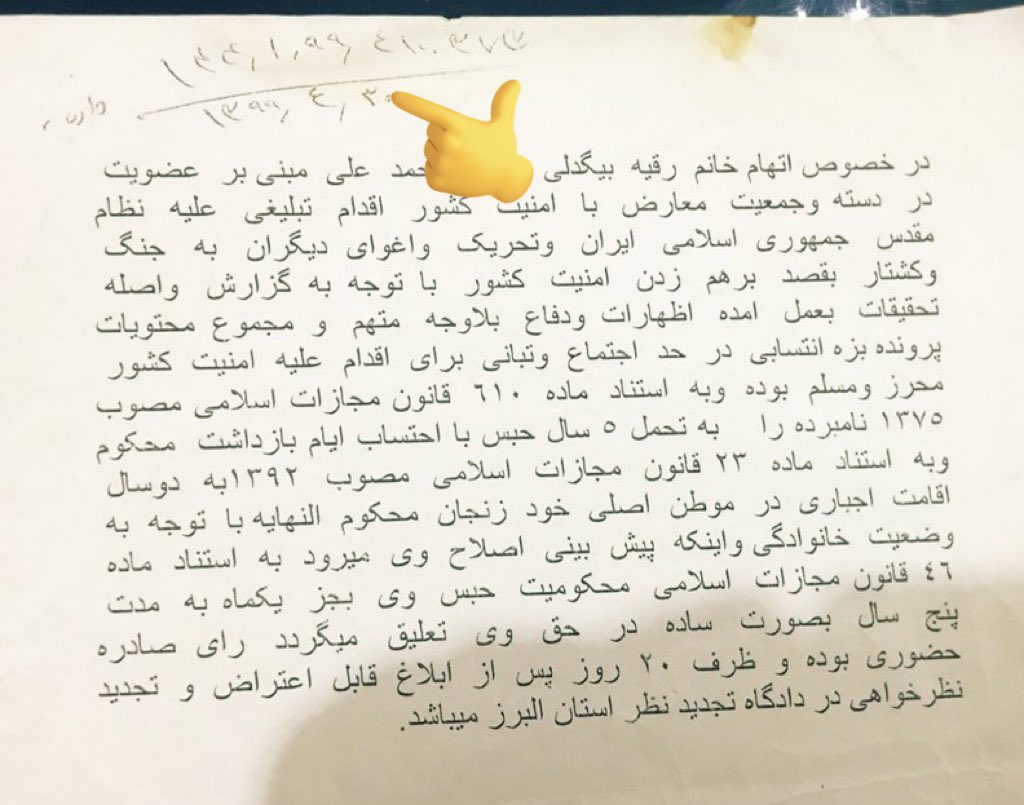 ۱۳۹۹٫٤٫۳۰
در خصوص اتهام خانم رقیه بیگدلی حمد علی مبنی بر عضویت
در دسته وجمعیت معارض با امنیت کشور اقدام تبلیغی علیه نظام
مقدس جمهوری اسلامی ایران وتحریک واغوای دیگران به جنگ
وکشتار بقصد برهم زدن امنیت کشور با توجه به گزارش واصله
تحقیقات بعمل امده اظهارات ودفاع بلاوجه متهم و مجموع محتویات
پرونده بزه انتسابی در حد اجتماع وتبانی برای اقدام علیه امنیت کشور
محرز ومسلم بوده وبه استناد ماده ٦١٠ قانون مجازات اسلامی مصوب
١٣٧٥ نامبرده را به تحمل ٥ سال حبس با احتساب ایام بازداشت محکوم
وبه استناد ماده ٢٣ قانون مجازات اسلامی مصوب ١٣٩٢به دوسال
اقامت اجباری در موطن اصلی خود زنجان محکوم النهایه با توجه به
وضعیت خانوادگی واینکه پیش بینی اصلاح وی میرود به استناد ماده
٤٦ قانون مجازات اسلامی محکومیت حبس وی بجز یکماه به مدت
پنج سال بصورت ساده در حق وی تعلیق میگردد رای صادره
حضوری بوده و ظرف ٢٠ روز پس از ابلاغ قابل اعتراض و تجدید
نظرخواهی در دادگاه تجدید نظر استان البرز میباشد.